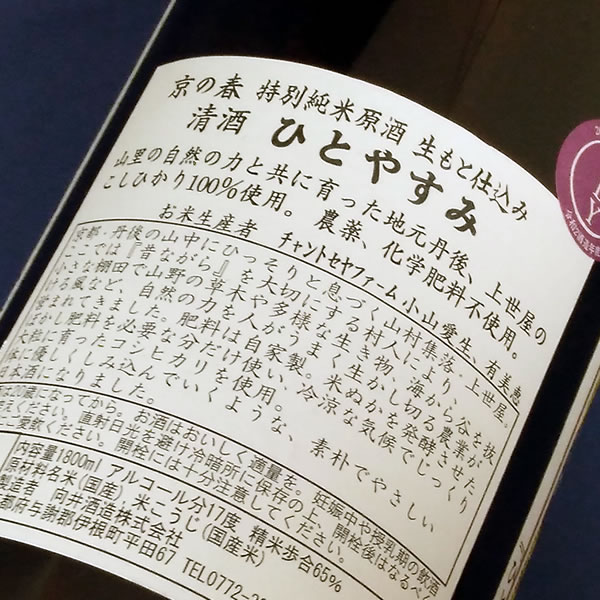 京の春 特別純米原酒 生もと仕込み
清酒 ひとやすみ
山里の自然の力と共に育った地元丹後、上世屋の
こしひかり100％使用。 農薬、化学肥料不使用。
お米生産者 チャントセヤファーム 小山愛生、有美恵
京都・丹後の山中にひっそりと息づく山村集落・上世屋。
ここでは『昔ながら』を大切にする村人により、
小さな棚田で山野の草木や多様な生き物、海から谷を抜
ける風など、自然の力を人がうまく生かし切る農業が
営まれてきました。肥料は自家製。米ぬかを発酵させた
ぼかし肥料を必要な分だけ使い、冷涼な気候でじっくり
大粒に育ったコシヒカリを使用。
体に優しくしみ込んでいくような、素朴でやさしい
日本酒になりました。
歳になってから。お酒はおいしく適量を。
妊娠中や授乳期の飲酒
ください。直射日光を避け冷暗所に保存の上、開栓後はなるべく
ご愛飲ください。開栓には十分注意してください。
内容量1800ml アルコール分17度 精米歩合65％
原材料名 米(国産)・米こうじ(国産米)
製造者 向井酒造株式会社
京都府与謝郡伊根町平田67 TEL0772-